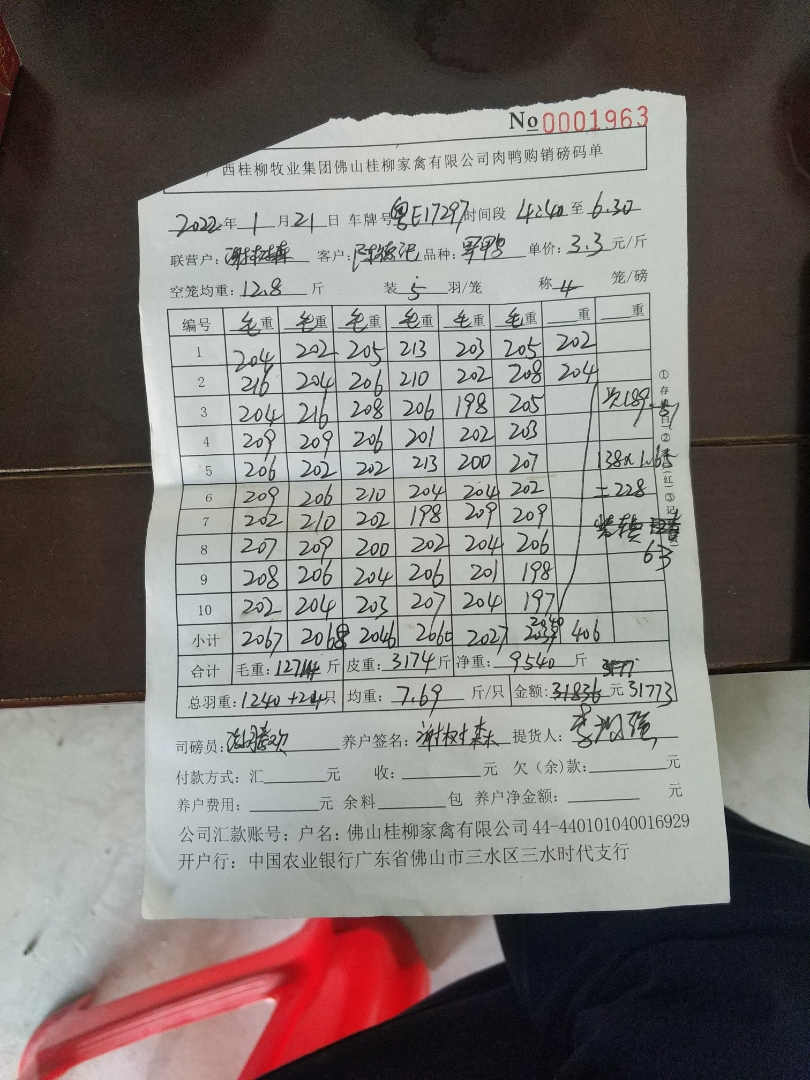 No 0001963
西桂柳牧业集团佛山桂柳家禽有限公司肉鸭购销磅码单
2022年 1 月 21 日 车牌号 粤E17297 时间段 4:40 至 6.30
联营户: 谢树森 客户: 品种: 单价: 3.3 元/斤
空笼均重: 12.8 斤 装 5 羽/笼 称 4 笼/磅
编号 毛重 毛重 毛重 毛重 毛重 毛重 重 重
1 204 202 205 213 203 205 202
2 216 204 206 210 202 208 204
3 204 216 208 206 198 205
4 209 209 206 201 202 203
5 206 202 202 213 200 207 138x1.65
6 209 206 210 204 204 202 =228
7 202 210 202 198 209 209
8 207 209 200 202 204 206 63
9 208 206 204 206 201 198
10 202 204 203 207 204 197
小计 2067 2068 2046 2660 2027 2040 406
合计 毛重: 斤 皮重: 3174 斤 净重: 9540 斤
总羽重: 1240 只 均重: 7.69 斤/只 金额: 31836 元 31773
司磅员: 养户签名: 谢树森 提货人: 李均强
付款方式: 汇 元 收: 元 欠(余)款: 元
养户费用: 元 余料 包 养户净金额: 元
公司汇款账号: 户名: 佛山桂柳家禽有限公司 44-440101040016929
开户行: 中国农业银行广东省佛山市三水区三水时代支行